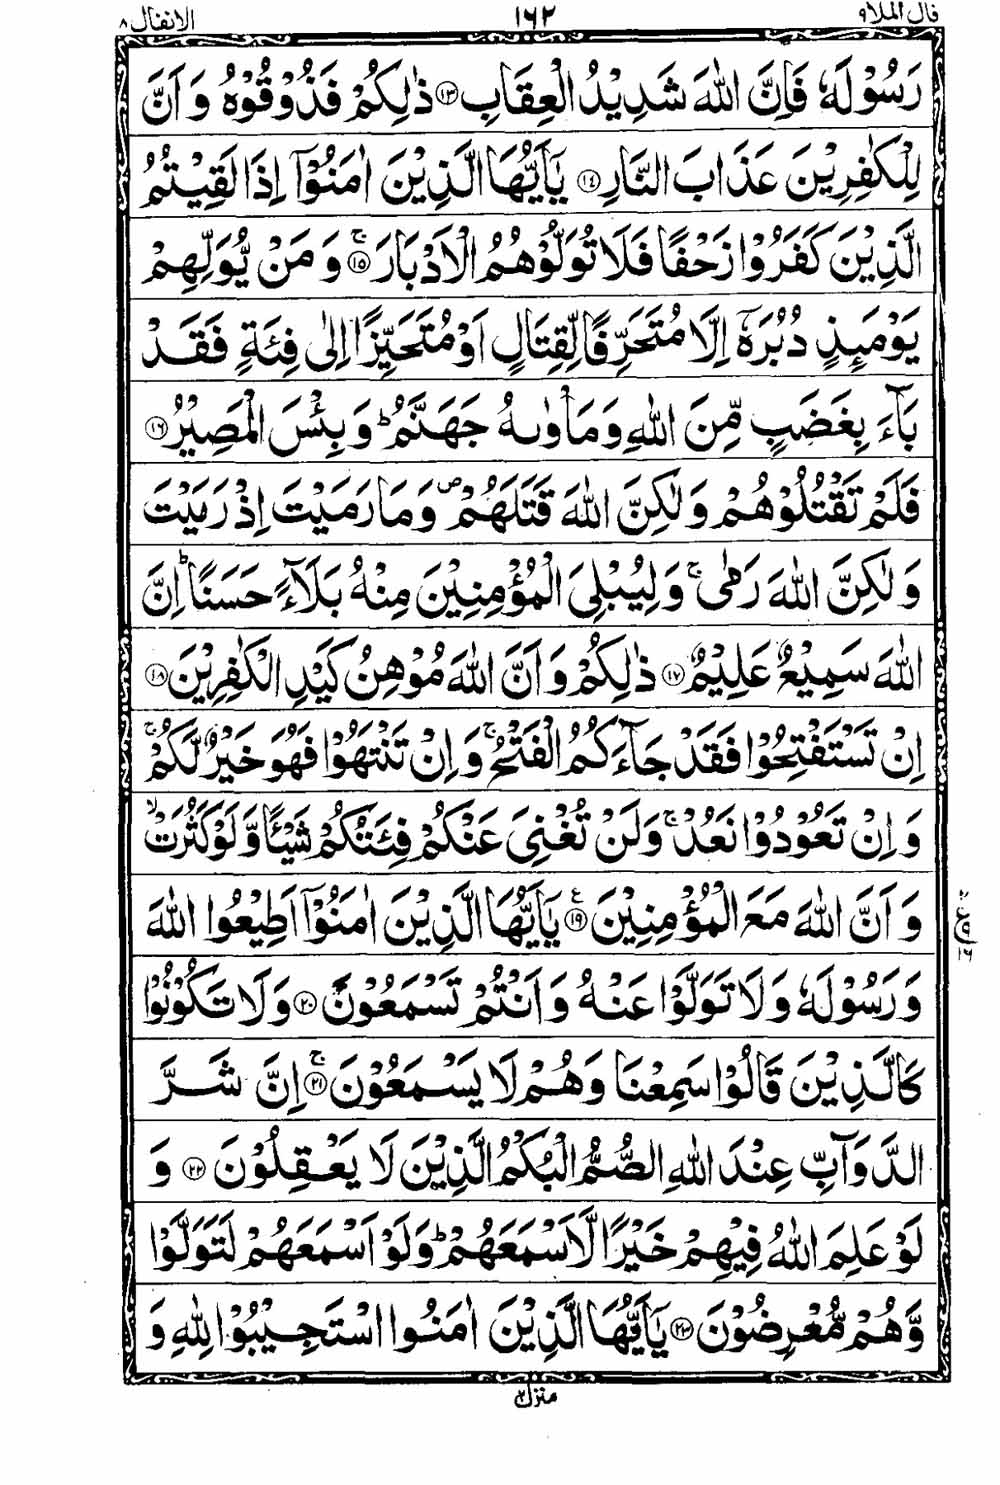 قال الملا ٩ ١٦٢ الانفال ٨
رَسُوْلَهٗ فَاِنَّ اللّٰهَ شَدِيْدُ الْعِقَابِ ﴿۱۳﴾ ذٰلِكُمْ فَذُوْقُوْهُ وَ اَنَّ
لِلْكٰفِرِيْنَ عَذَابَ النَّارِ ﴿۱٤﴾ يٰۤاَيُّهَا الَّذِيْنَ اٰمَنُوْۤا اِذَا لَقِيْتُمُ
الَّذِيْنَ كَفَرُوْا زَحْفًا فَلَا تُوَلُّوْهُمُ الْاَدْبَارَ ﴿۱۵﴾ۚ وَ مَنْ يُّوَلِّهِمْ
يَوْمَئِذٍ دُبُرَهٗۤ اِلَّا مُتَحَرِّفًا لِّقِتَالٍ اَوْ مُتَحَيِّزًا اِلٰى فِئَةٍ فَقَدْ
بَآءَ بِغَضَبٍ مِّنَ اللّٰهِ وَ مَاْوٰىهُ جَهَنَّمُ ؕ وَ بِئْسَ الْمَصِيْرُ ﴿۱۶﴾
فَلَمْ تَقْتُلُوْهُمْ وَ لٰكِنَّ اللّٰهَ قَتَلَهُمْ ۪ وَ مَا رَمَيْتَ اِذْ رَمَيْتَ
وَ لٰكِنَّ اللّٰهَ رَمٰى ۚ وَ لِيُبْلِيَ الْمُؤْمِنِيْنَ مِنْهُ بَلَآءً حَسَنًا ؕ اِنَّ
اللّٰهَ سَمِيْعٌ عَلِيْمٌ ﴿۱۷﴾ ذٰلِكُمْ وَ اَنَّ اللّٰهَ مُوْهِنُ كَيْدِ الْكٰفِرِيْنَ ﴿۱۸﴾
اِنْ تَسْتَفْتِحُوْا فَقَدْ جَآءَكُمُ الْفَتْحُ ۚ وَ اِنْ تَنْتَهُوْا فَهُوَ خَيْرٌ لَّكُمْ ۚ
وَ اِنْ تَعُوْدُوْا نَعُدْ ۚ وَ لَنْ تُغْنِيَ عَنْكُمْ فِئَتُكُمْ شَيْـًٔا وَّ لَوْ كَثُرَتْ ۙ
وَ اَنَّ اللّٰهَ مَعَ الْمُؤْمِنِيْنَ ﴿۱۹﴾ يٰۤاَيُّهَا الَّذِيْنَ اٰمَنُوْۤا اَطِيْعُوا اللّٰهَ
وَ رَسُوْلَهٗ وَ لَا تَوَلَّوْا عَنْهُ وَ اَنْتُمْ تَسْمَعُوْنَ ﴿۲۰﴾ۚ وَ لَا تَكُوْنُوْا
كَالَّذِيْنَ قَالُوْا سَمِعْنَا وَ هُمْ لَا يَسْمَعُوْنَ ﴿۲۱﴾ۚ اِنَّ شَرَّ
الدَّوَآبِّ عِنْدَ اللّٰهِ الصُّمُّ الْبُكْمُ الَّذِيْنَ لَا يَعْقِلُوْنَ ﴿۲۲﴾ وَ
لَوْ عَلِمَ اللّٰهُ فِيْهِمْ خَيْرًا لَّاَسْمَعَهُمْ ؕ وَ لَوْ اَسْمَعَهُمْ لَتَوَلَّوْا
وَّ هُمْ مُّعْرِضُوْنَ ﴿۲۳﴾ يٰۤاَيُّهَا الَّذِيْنَ اٰمَنُوا اسْتَجِيْبُوْا لِلّٰهِ وَ
منزل ٢